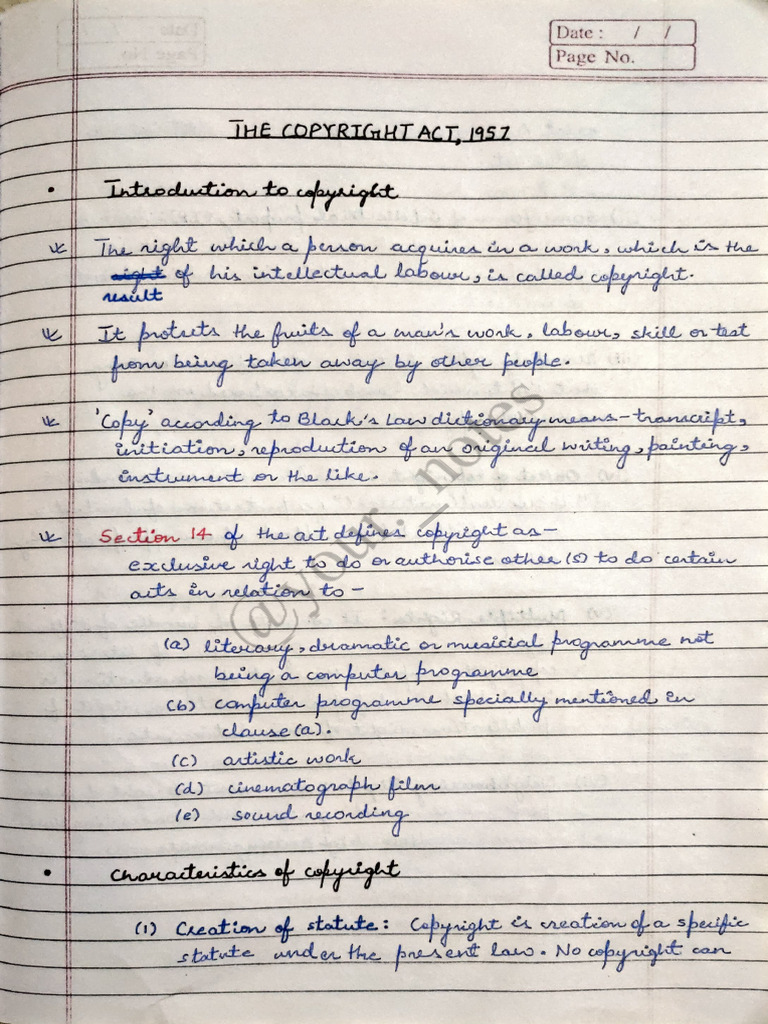 Date : / /
Page No.
THE COPYRIGHT ACT, 1957
• Introduction to copyright
The right which a person acquires in a work, which is the
right of his intellectual labour, is called copyright.
result
It protects the fruits of a man's work, labour, skill or test
from being taken away by other people.
'Copy' according to Black's Law dictionary means - transcript,
initiation, reproduction of an original writing, painting,
instrument or the like.
Section 14 of the act defines copyright as -
exclusive right to do or authorise other (s) to do certain
acts in relation to -
(a) literary, dramatic or musicial programme not
being a computer programme
(b) computer programme specially mentioned in
clause (a).
(c) artistic work
(d) cinematograph film
(e) sound recording
• Characteristics of copyright
(1) Creation of statute : Copyright is creation of a specific
statute under the present law. No copyright can
@your._notes